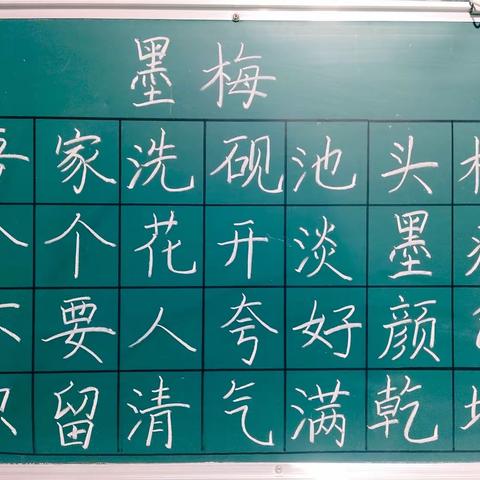 墨梅
家洗砚池头
个花开淡墨
要人夸好颜
留清气满乾